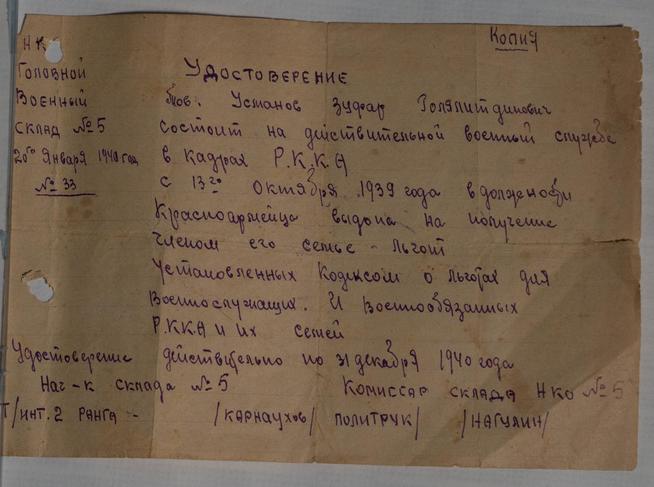 Копия
НК
Головной
Военный
склад №5
20го Января 1940 год
№ 33
Удостоверение
тов. Усманов Зуфар
состоит на действительной военный службе
в кадрах Р.К.К.А
с 13го Октября 1939 года в должности
Красноармейца выдона на получение
членом его семье - льгот
Установленных Кодексом о льготах для
Военнослужащих. И Военнообязанных
Р.ККА и их семей
Удостоверение действительно по 31 декабря 1940 года
Нач-к склада №5 Комиссар склада НКО №5
Т/инт. 2 ранга - /Карнаухов/ политрук/ /Нагулин/